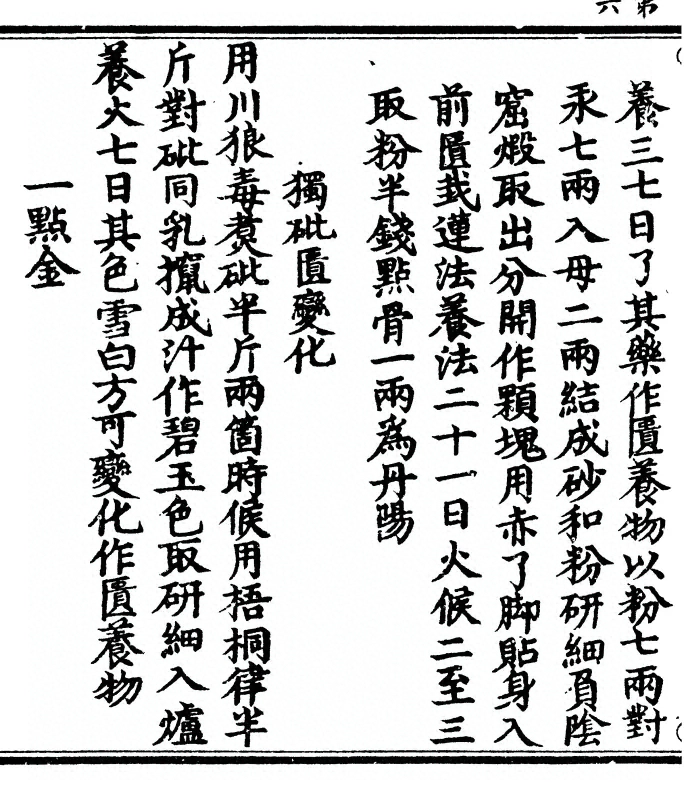 第六
養三七日了其藥作匱養物以粉七兩對
汞七兩入母二兩結成砂和粉研細負陰
窟煅取出分開作顆塊用赤了脚貼身入
前匱㦲連法養法二十一日火候二至三
取粉半錢點骨一兩爲丹陽
獨砒匱變化
用川狼毒煑砒半斤兩箇時候用梧桐律半
斤對砒同乳攛成汁作碧玉色取研細入爐
養火七日其色雪白方可變化作匱養物
一點金